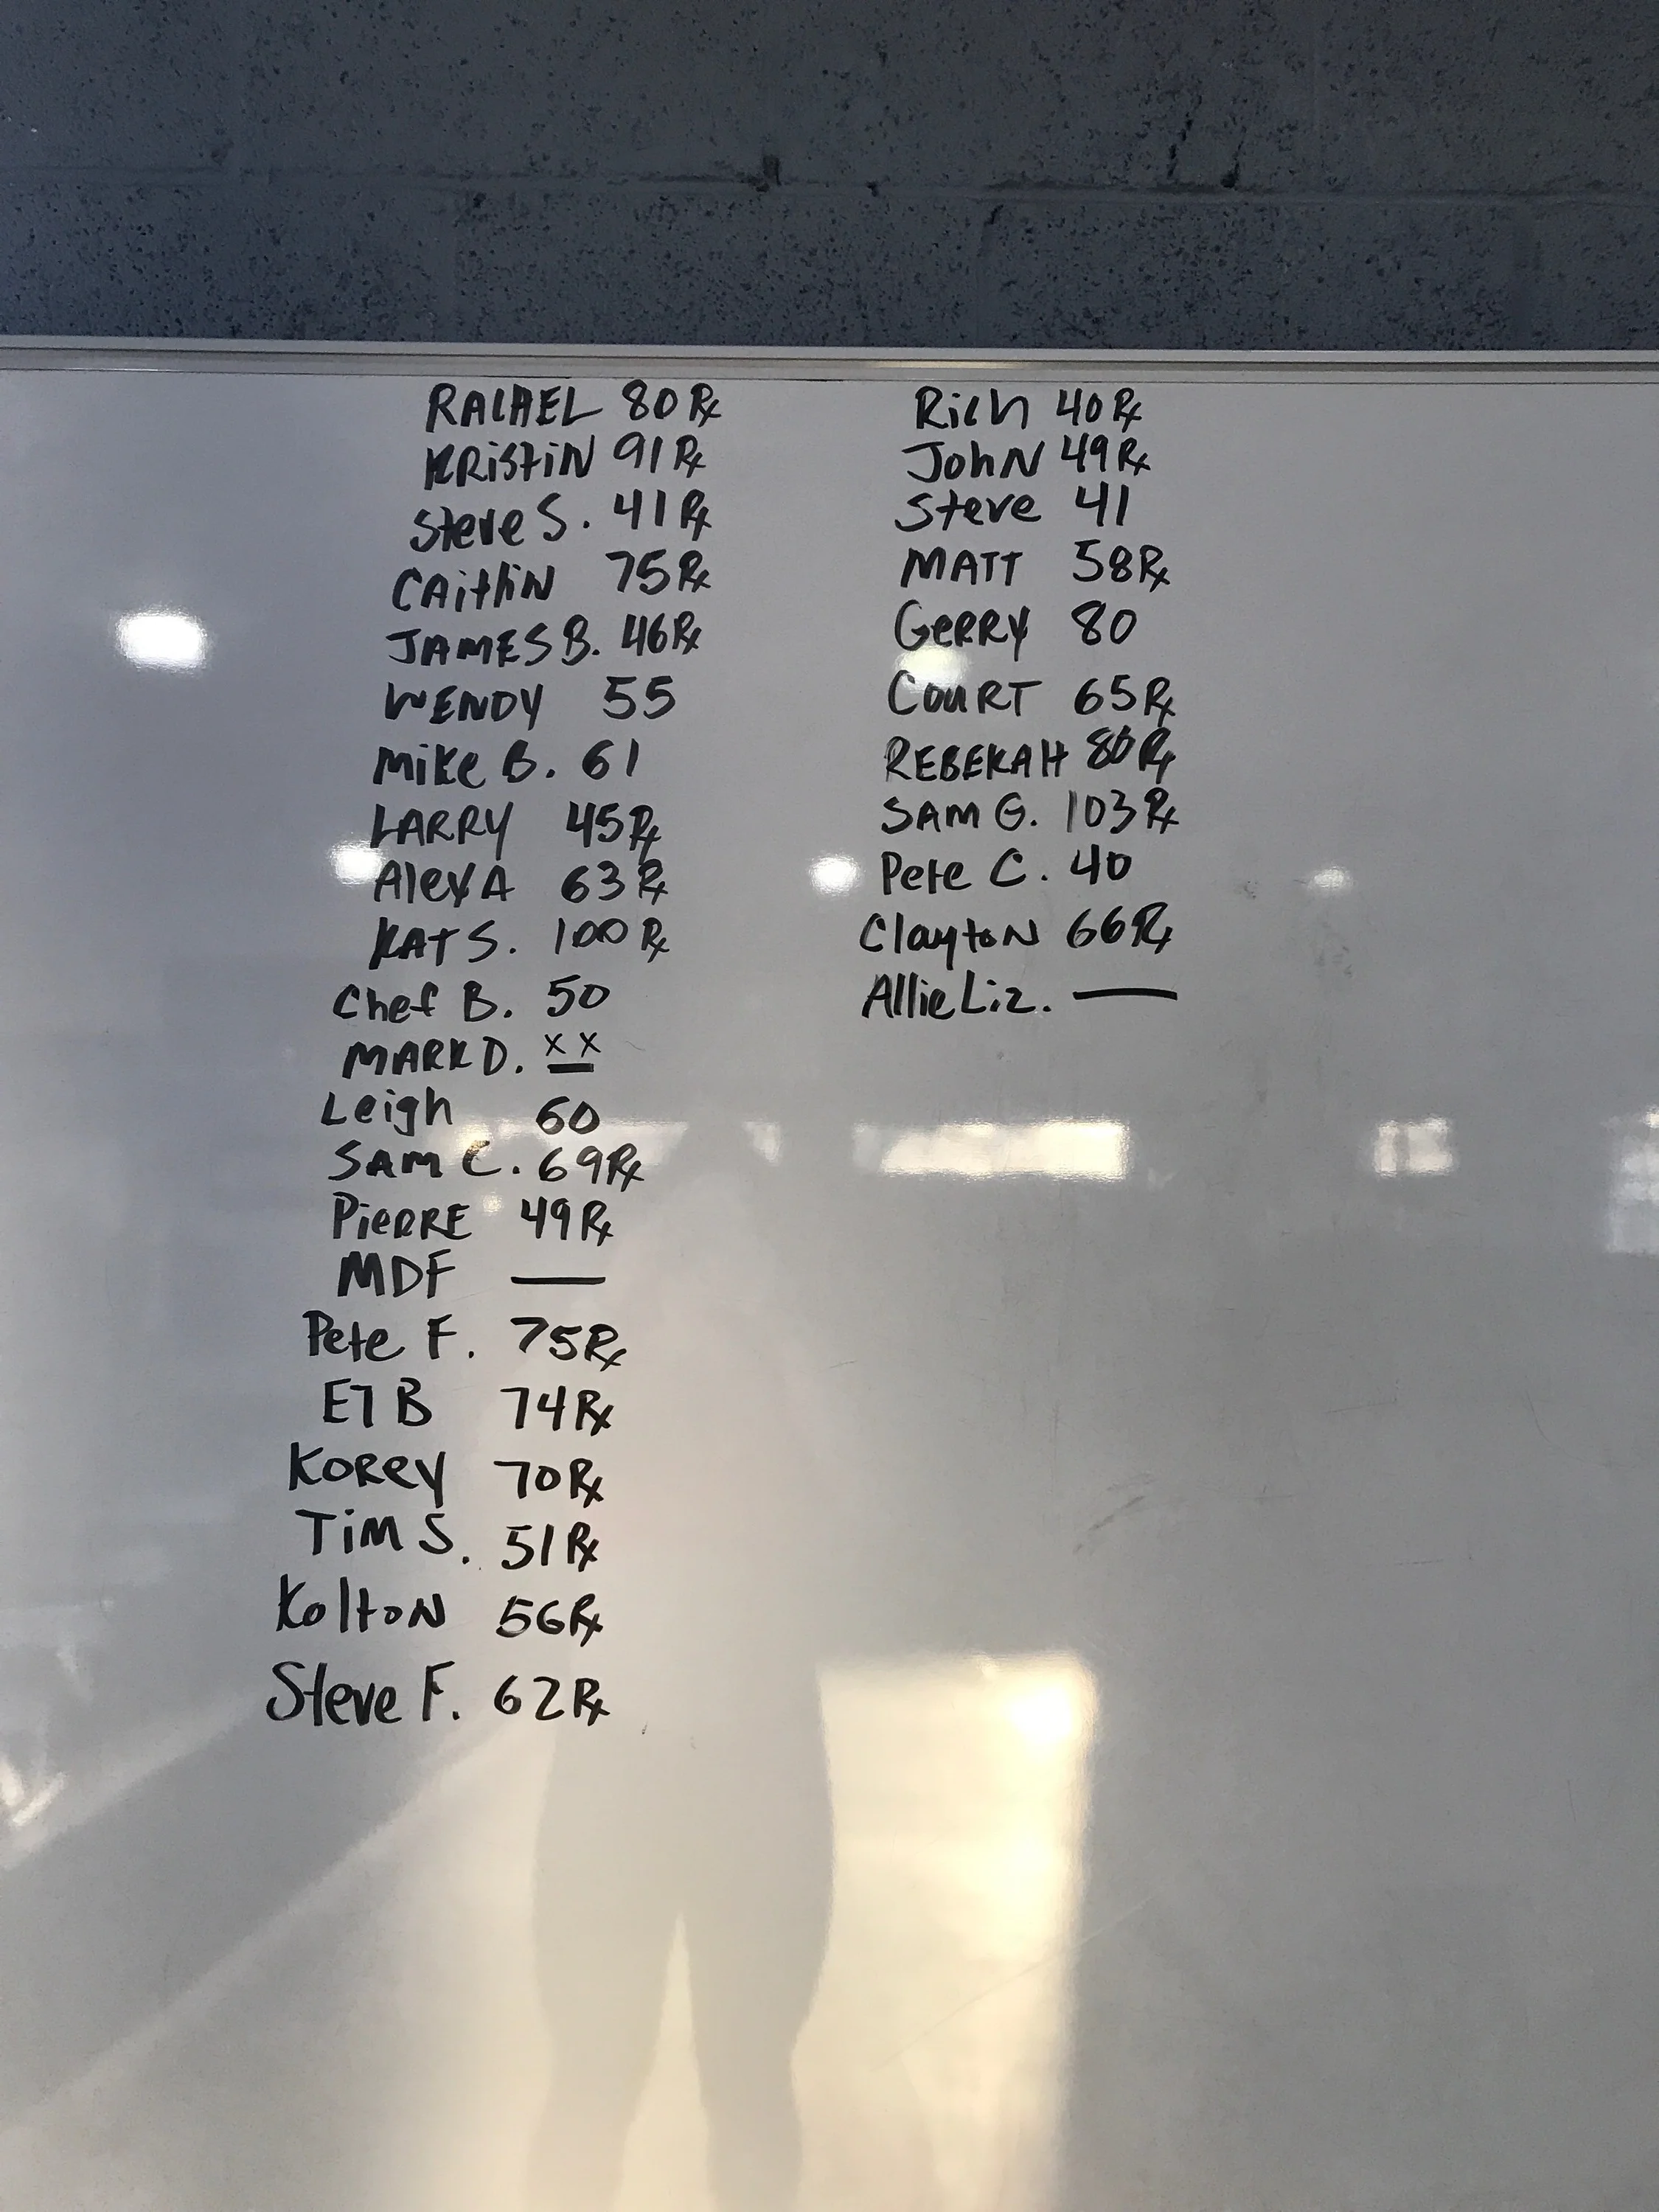 RACHEL 80 Rx
KRiSTiN 91 Rx
Steve S. 41 Rx
CAitlin 75 Rx
JAMES B. 46 Rx
WENDY 55
Mike B. 61
LARRY 45 Rx
AlexA 63 Rx
KAT S. 100 Rx
Chef B. 50
MARK D. x x
Leigh 60
SAM C. 69 Rx
PieRRE 49 Rx
MDF —
Pete F. 75 Rx
ETB 74 Rx
KoRey 70 Rx
TiM S. 51 Rx
KoltoN 56 Rx
Steve F. 62 Rx
Rich 40 Rx
JohN 49 Rx
Steve 41
MATT 58 Rx
GeRRY 80
CouRT 65 Rx
REBEKAH 80 Rx
SAM G. 103 Rx
Pete C. 40
ClaytoN 66 Rx
Allie Liz. —